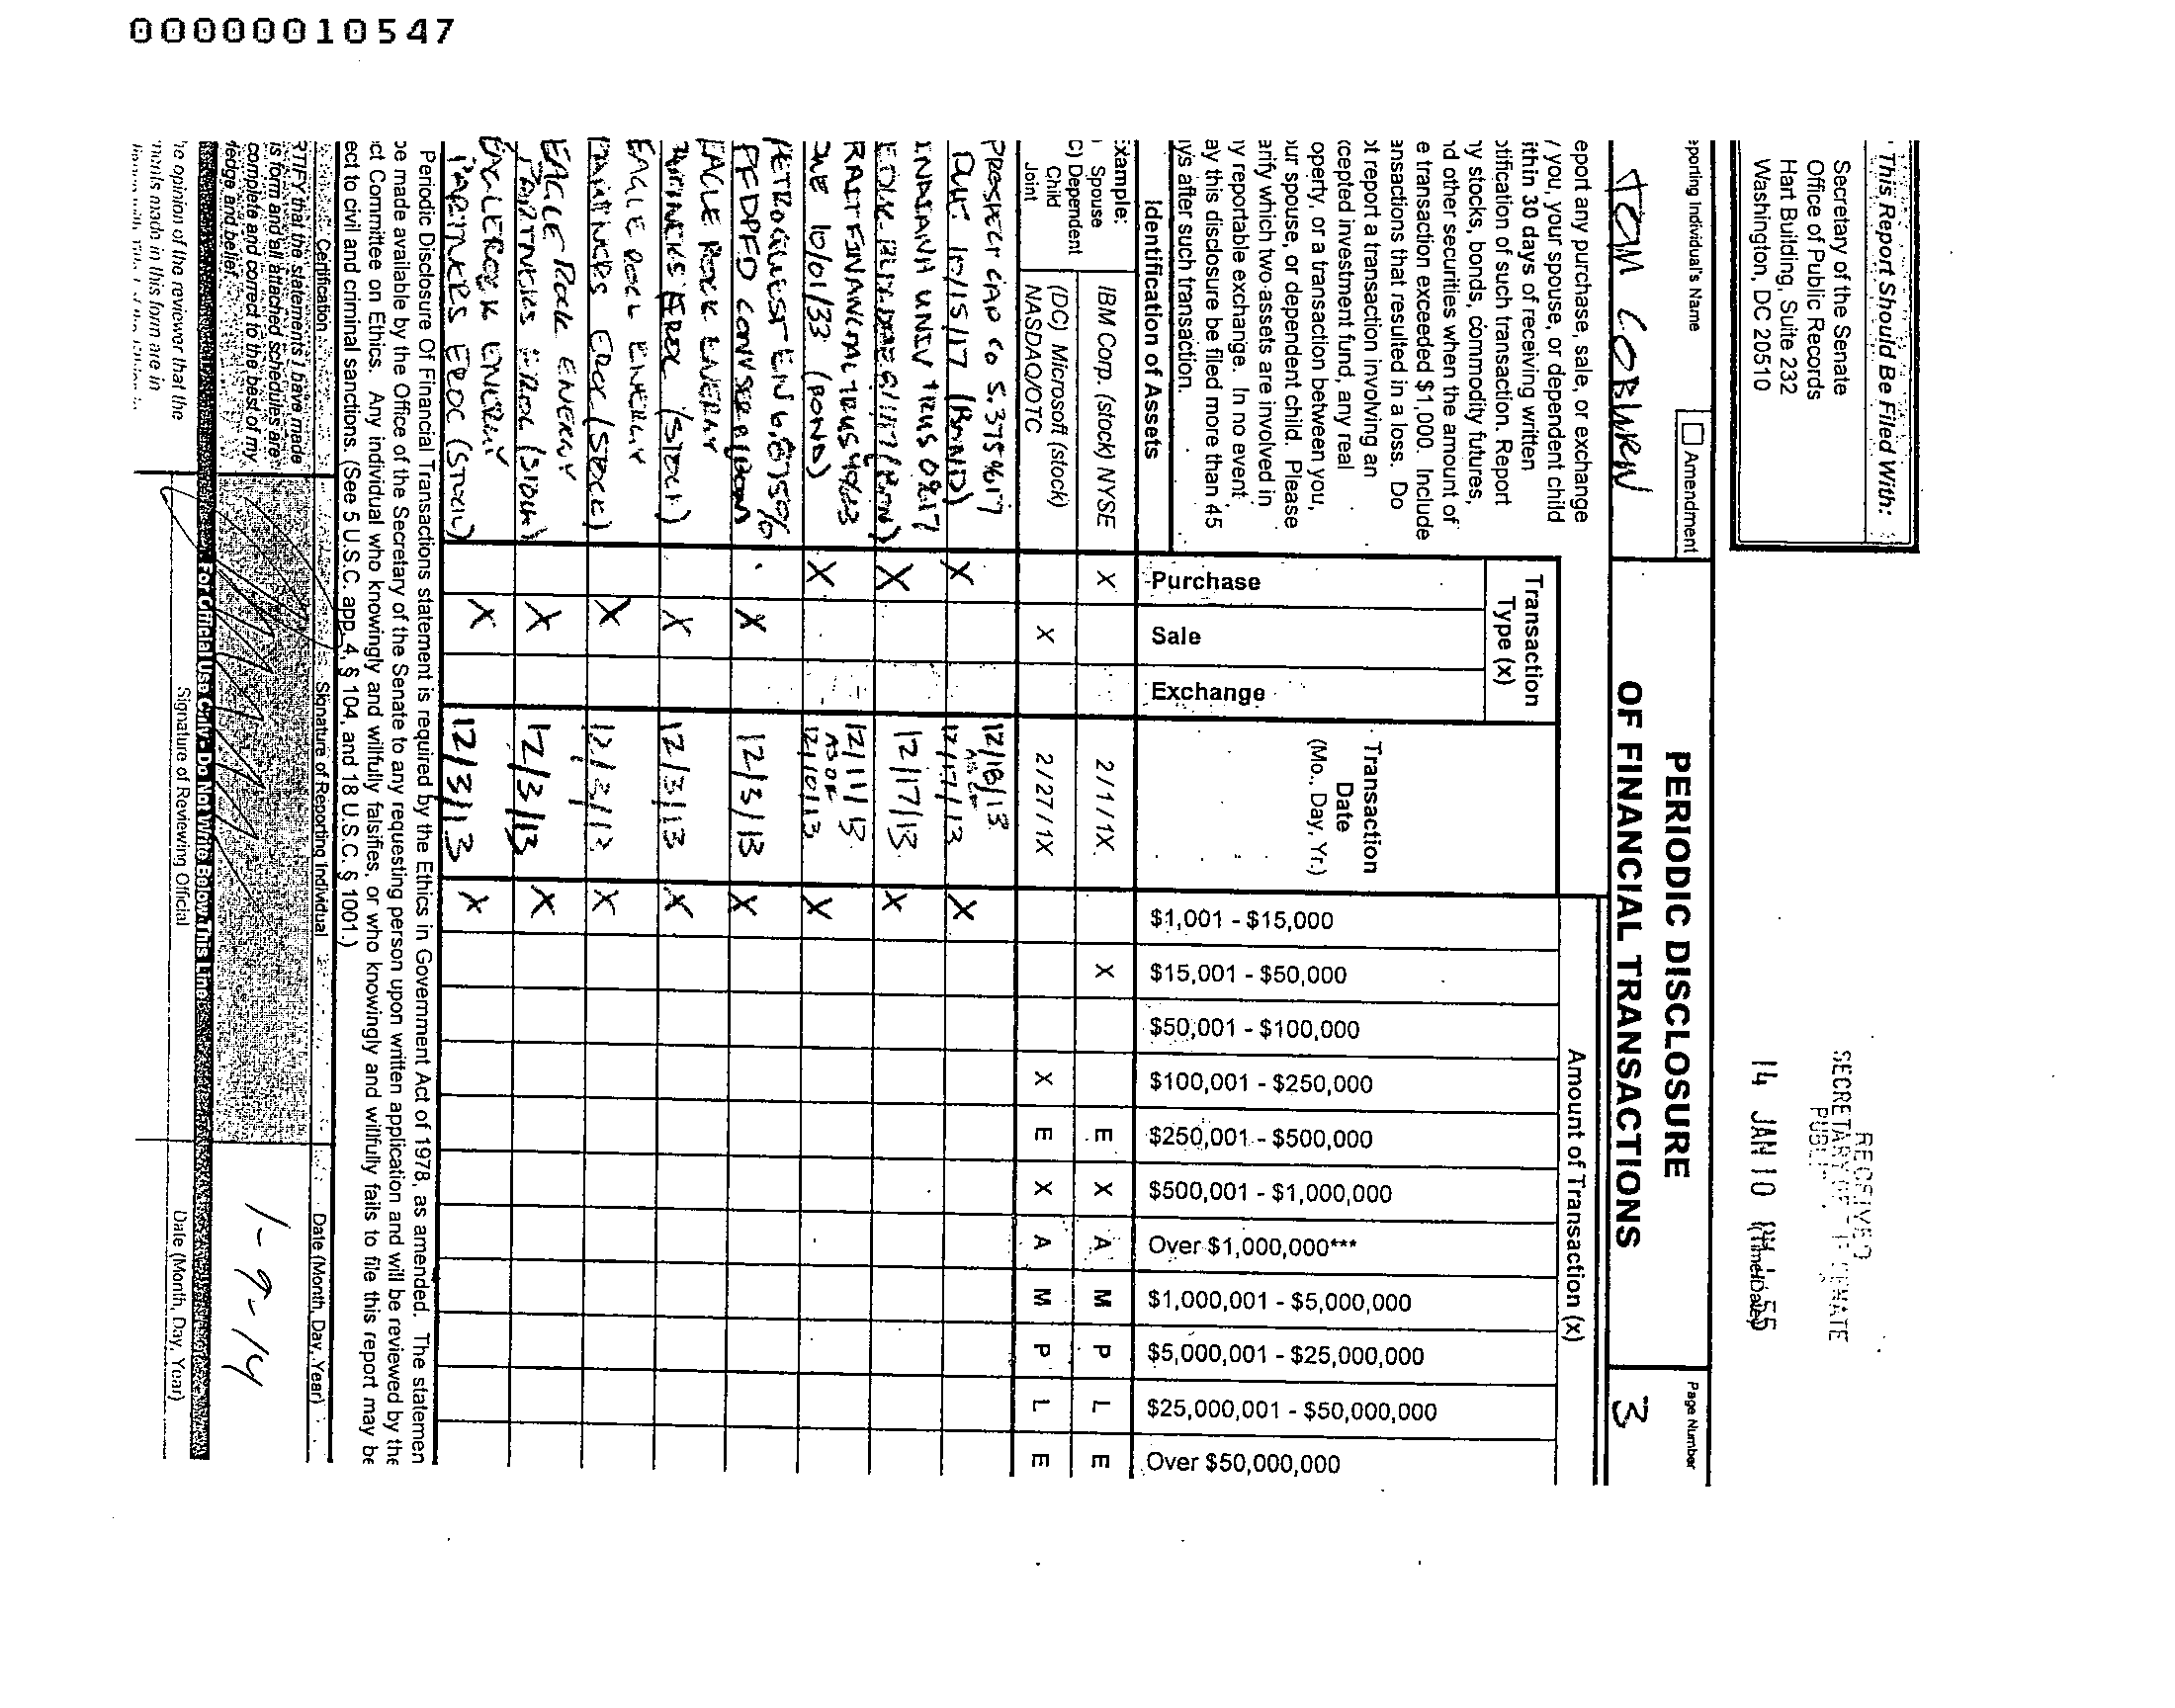 00000010547
This Report Should Be Filed With:
Secretary of the Senate
Office of Public Records
Hart Building, Suite 232
Washington, DC 20510
RECEIVED
SECRETARY OF THE SENATE
14 JAN 10 PM
eporting Individual's Name
Amendment
TOM COBURN
PERIODIC DISCLOSURE
OF FINANCIAL TRANSACTIONS
Page Number
3
eport any purchase, sale, or exchange
you, your spouse, or dependent child
ithin 30 days of receiving written
otification of such transaction. Report
ny stocks, bonds, commodity futures,
nd other securities when the amount of
e transaction exceeded $1,000. Include
ansactions that resulted in a loss. Do
ot report a transaction involving an
xcepted investment fund, any real
operty, or a transaction between you,
our spouse, or dependent child. Please
arify which two assets are involved in
ny reportable exchange. In no event
ay this disclosure be filed more than 45
ays after such transaction.
Identification of Assets
Transaction
Type (x)
Purchase
Sale
Exchange
Transaction
Date
(Mo., Day, Yr.)
Amount of Transaction (x)
$1,001 - $15,000
$15,001 - $50,000
$50,001 - $100,000
$100,001 - $250,000
$250,001 - $500,000
$500,001 - $1,000,000
Over $1,000,000***
$1,000,001 - $5,000,000
$5,000,001 - $25,000,000
$25,000,001 - $50,000,000
Over $50,000,000
Example:
Spouse
C) Dependent
Child
Joint
IBM Corp. (stock) NYSE X 2/1/1X X E X A M P L E
(DC) Microsoft (stock)
NASDAQ/OTC X 2/27/1X X E X A M P L E
PROSPECT CAP CO 5.375%17 12/18/13
DUE 10/15/17 (BOND) X 12/17/13 X
INDIANA UNIV TRUS
X 12/17/13 X
RAIT FINANCIAL TRUS 12/11/13
AS OF
DUE 10/01/33 (BOND) X 12/10/13 X
PETROQUEST EN 6.875%
PFDPFD CONV SER X 12/3/13 X
EAGLE ROCK ENERGY
PARTNERS EROC (STOCK) X 12/3/13 X
EAGLE ROCK ENERGY
PARTNERS EROC (STOCK) X 12/3/13 X
EAGLE ROCK ENERGY
PARTNERS EROC (STOCK) X 12/3/13 X
EAGLEROCK ENERGY
PARTNERS EROC (STOCK) X 12/3/13 X
Periodic Disclosure Of Financial Transactions statement is required by the Ethics in Government Act of 1978, as amended. The statemen
be made available by the Office of the Secretary of the Senate to any requesting person upon written application and will be reviewed by the
ct Committee on Ethics. Any individual who knowingly and willfully falsifies, or who knowingly and willfully fails to file this report may be
ect to civil and criminal sanctions. (See 5 U.S.C. app. 4, § 104, and 18 U.S.C. § 1001.)
Certification
Signature of Reporting Individual
Date (Month, Day, Year)
RTIFY that the statements I have made
is form and all attached schedules are
complete and correct to the best of my
ledge and belief.
1-9-14
For Official Use Only - Do Not Write Below This Line
he opinion of the reviewer that the
ments made in this form are in
Signature of Reviewing Official
Date (Month, Day, Year)